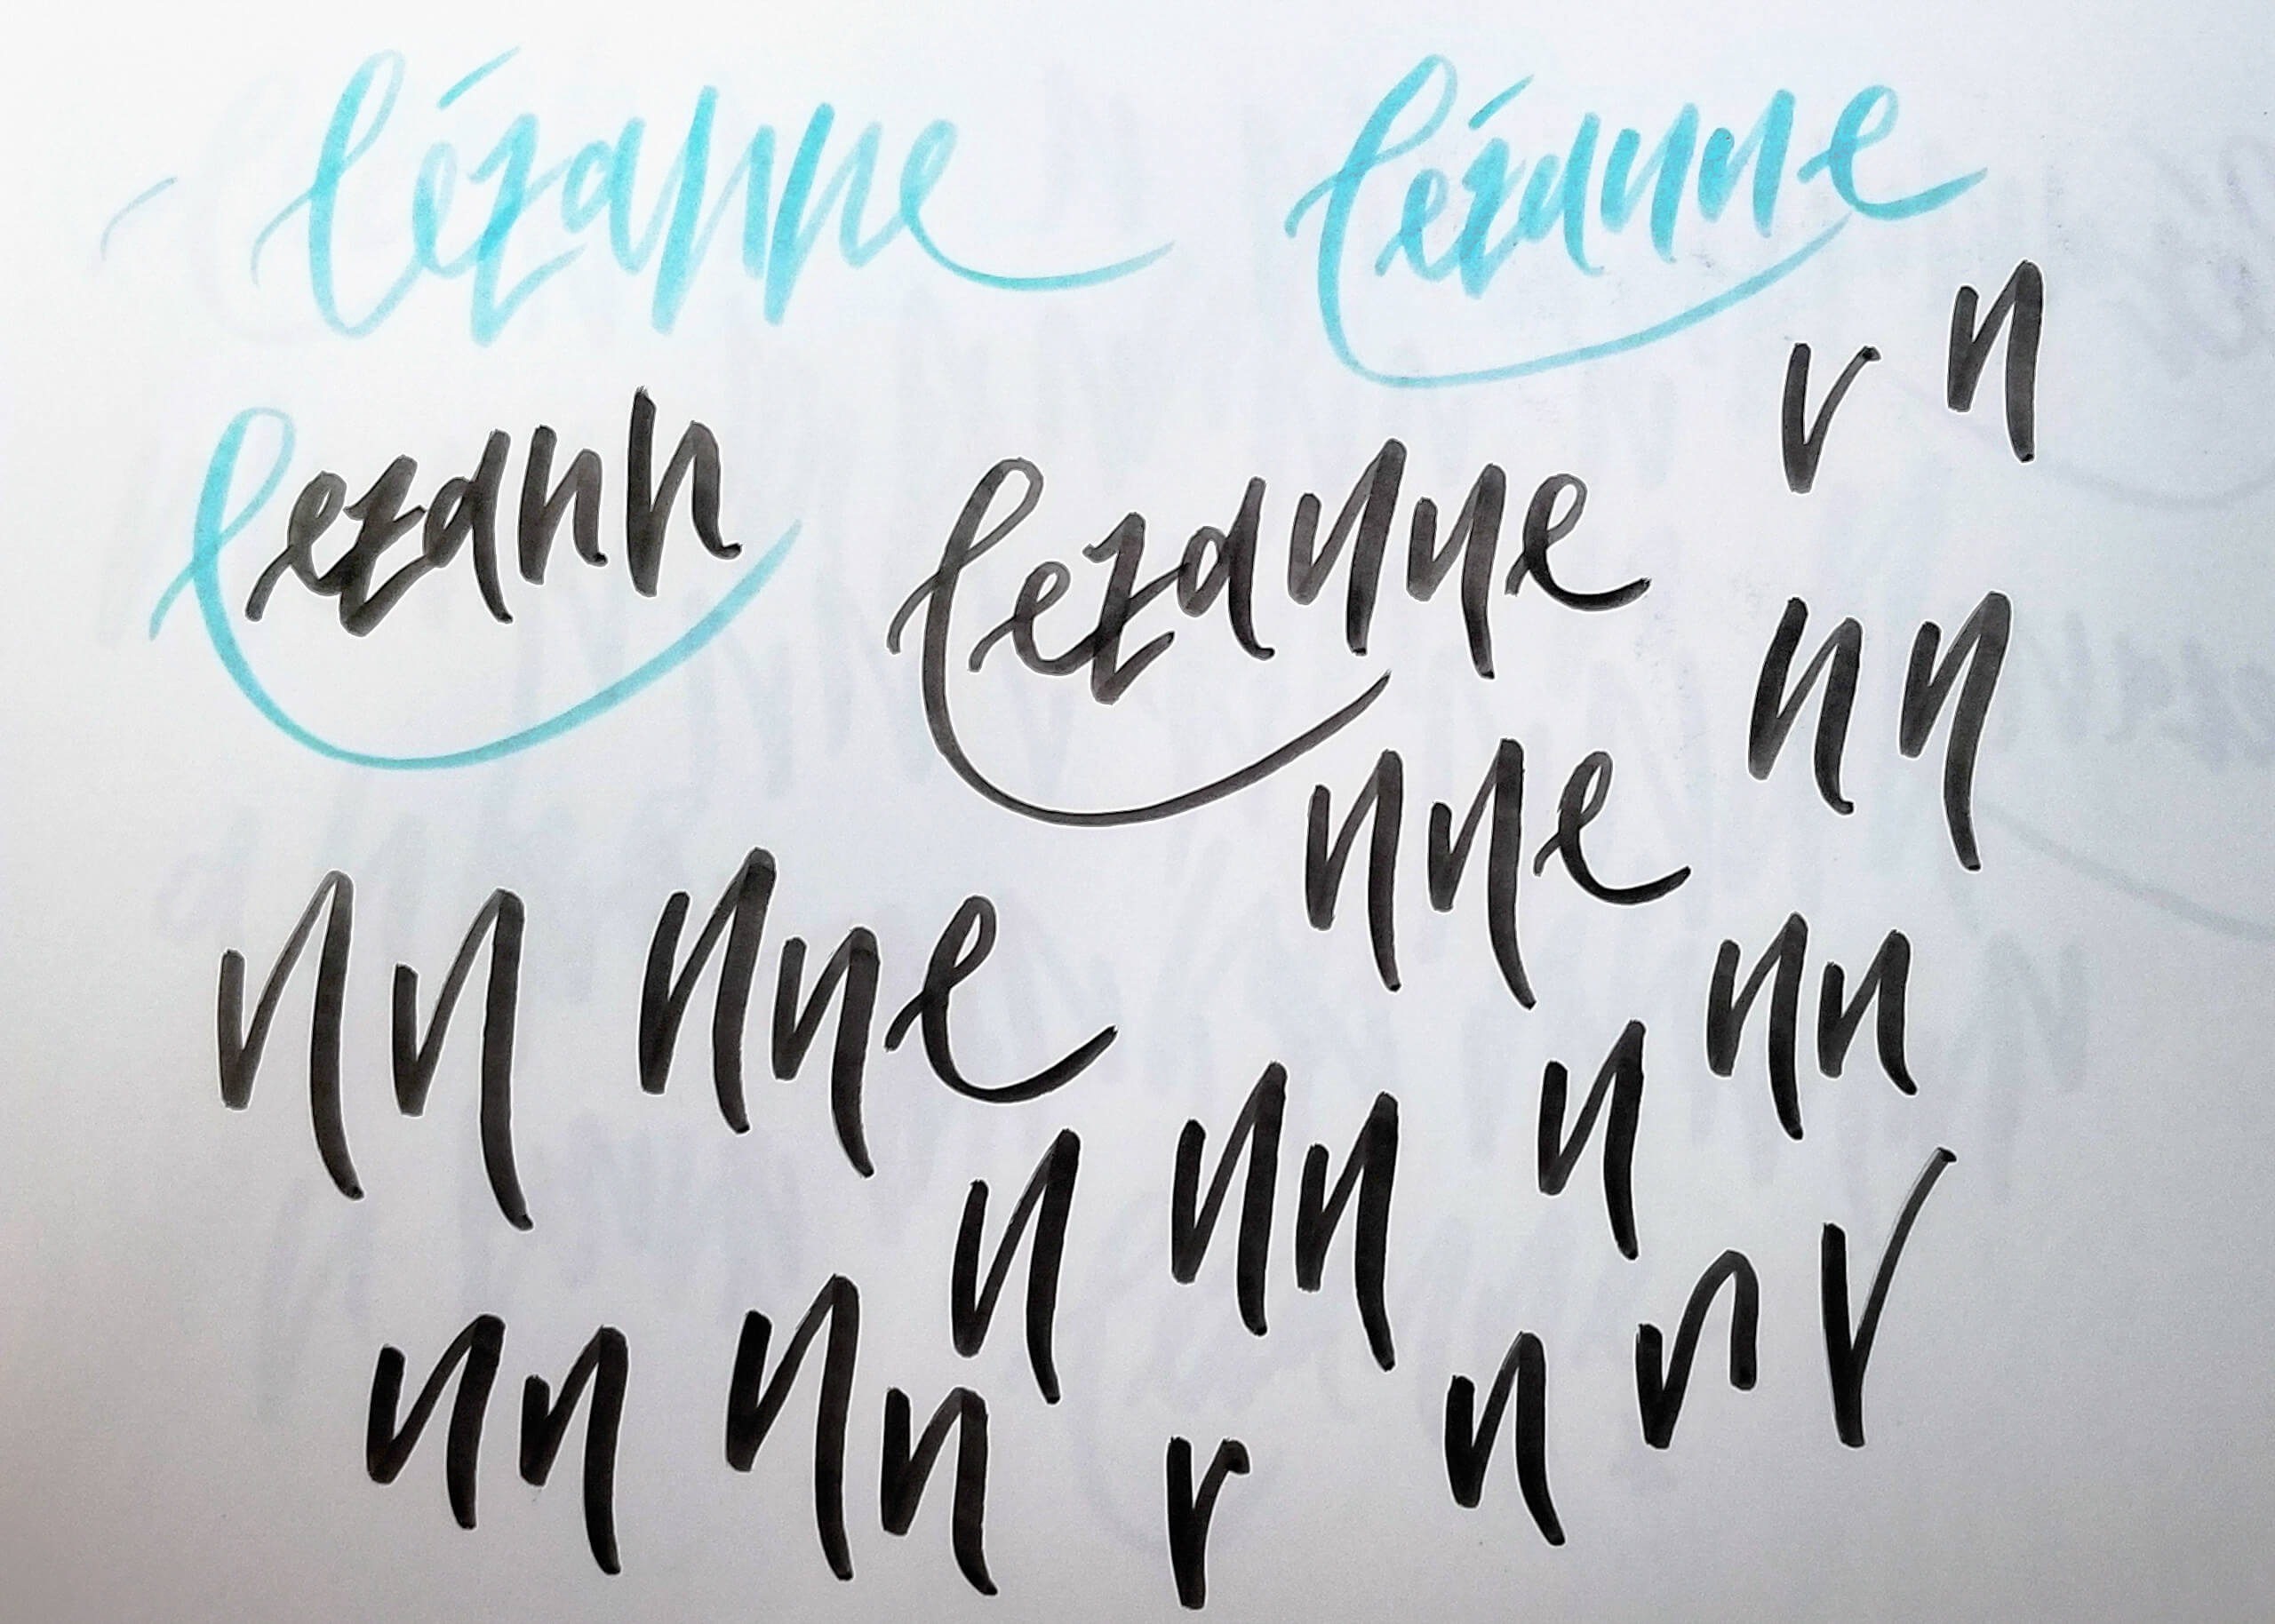 lézanne lézanne
r n
lezann lezanne
n n
nne
nn nne nn
n nn n
nn nn r n n r